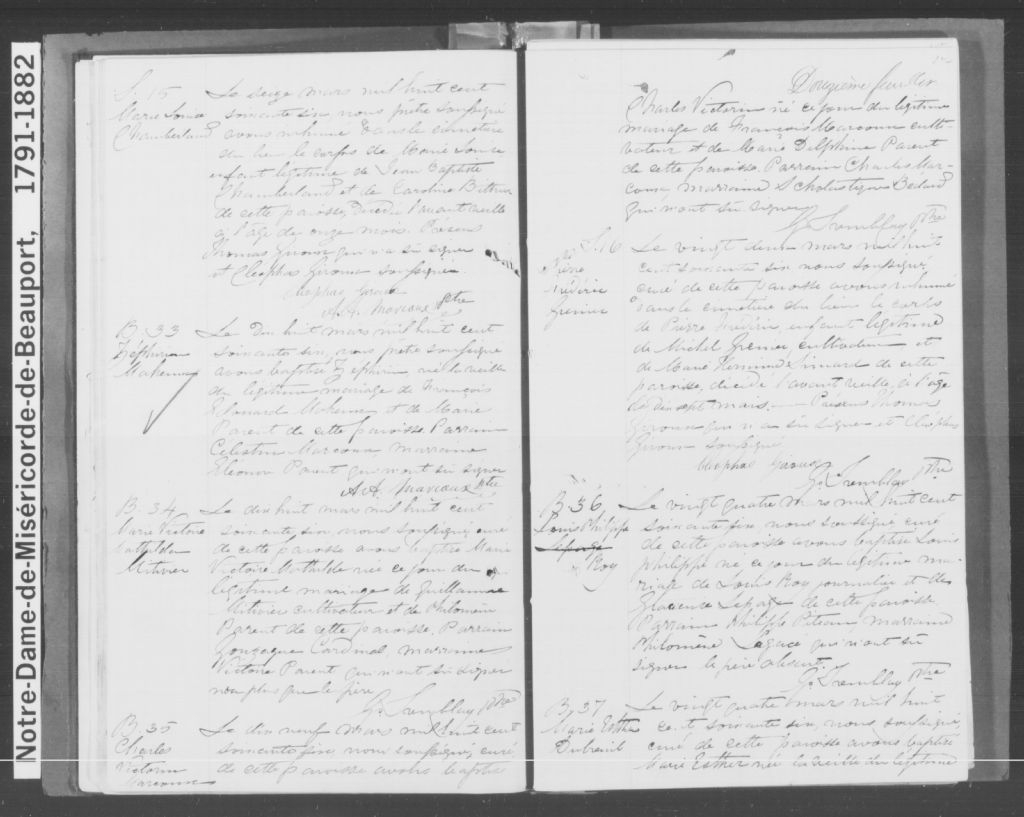 Notre-Dame-de-Miséricorde-de-Beauport, 1791-1882
S. 15
Marie Louise
Chamberland
Le seize mars mil huit cent
soixante six, nous prêtre soussigné
avons inhumé dans le cimetière
du lieu le corps de Marie Louise
enfant légitime de Jean Baptiste
Chamberland et de Caroline
de cette paroisse, décédée l'avant veille
à l'age de onze mois. Présens
Thomas Giroux qui n'a su signer
et Cléophas Giroux soussigné.
Cléophas Giroux
A. A. Marceaux Ptre
B. 33
Zéphirin
Maheux
Le dix huit mars mil huit cent
soixante six, nous prêtre soussigné
avons baptisé Zéphirin né la veille
du légitime mariage de François
Edouard Maheux et de Marie
Parent de cette paroisse. Parrain
Célestin Marcoux marraine
Eléonore Parent qui n'ont su signer
A. A. Marceaux Ptre
B. 34
Marie Victoire
Mathilde
Mitivier
Le dix huit mars mil huit cent
soixante six, nous soussigné curé
de cette paroisse avons baptisé Marie
Victoire Mathilde née ce jour du
légitime mariage de Guillaume
Mitivier cultivateur et de Philomène
Parent de cette paroisse. Parrain
Gonzague Cardinal, marraine
Victoire Parent qui n'ont su signer
non plus que le père
G. Tremblay Ptre
B. 35
Charles
Victorin
Marcoux
Le dix neuf mars mil huit cent
soixante six nous soussigné, curé
de cette paroisse avons baptisé
Douzième feuillet
Charles Victorin né ce jour du légitime
mariage de François Marcoux culti-
vateur et de Marie Delphine Parent
de cette paroisse. Parrain Charles Mar-
coux, marraine Scholastique Bedard
qui n'ont su signer
G. Tremblay Ptre
S. 16
Pierre
Frédéric
Grenier
Le vingt deux mars mil huit
cent soixante six nous soussigné
curé de cette paroisse avons inhumé
dans le cimetière du lieu le corps
de Pierre Frédéric, enfant légitime
de Michel Grenier, cultivateur et
de Marie Simard de cette
paroisse, décédé l'avant veille, à l'âge
de dix sept mois. — Présens Thomas
Giroux qui n'a su signer et Cléophas
Giroux soussigné
Cléophas Giroux
G. Tremblay Ptre
B. 36
Louis Philippe
Lepage
Roy
Le vingt quatre mars mil huit cent
soixante six nous soussigné curé
de cette paroisse avons baptisé Louis
Philippe né ce jour du légitime ma-
riage de Louis Roy journalier et de
Lepage de cette paroisse
Parrain Philippe marraine
Philomène qui n'ont su
signer le père absent.
G. Tremblay Ptre
B. 37
Marie Esther
Dubreuil
Le vingt quatre mars mil huit
cent soixante six, nous soussigné,
curé de cette paroisse avons baptisé
Marie Esther née la veille du légitime